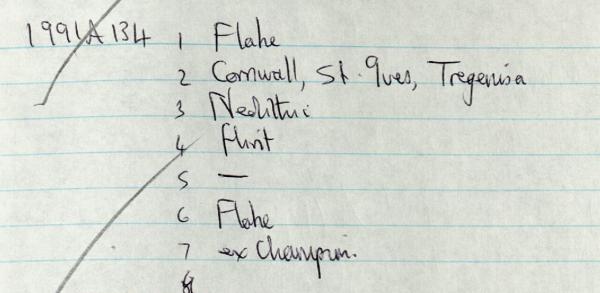 1991A134 1 Flake
2 Cornwall, St. Ives, Tregenisa
3 Neolithic
4 flint
5 —
6 Flake
7 ex Champion.
8